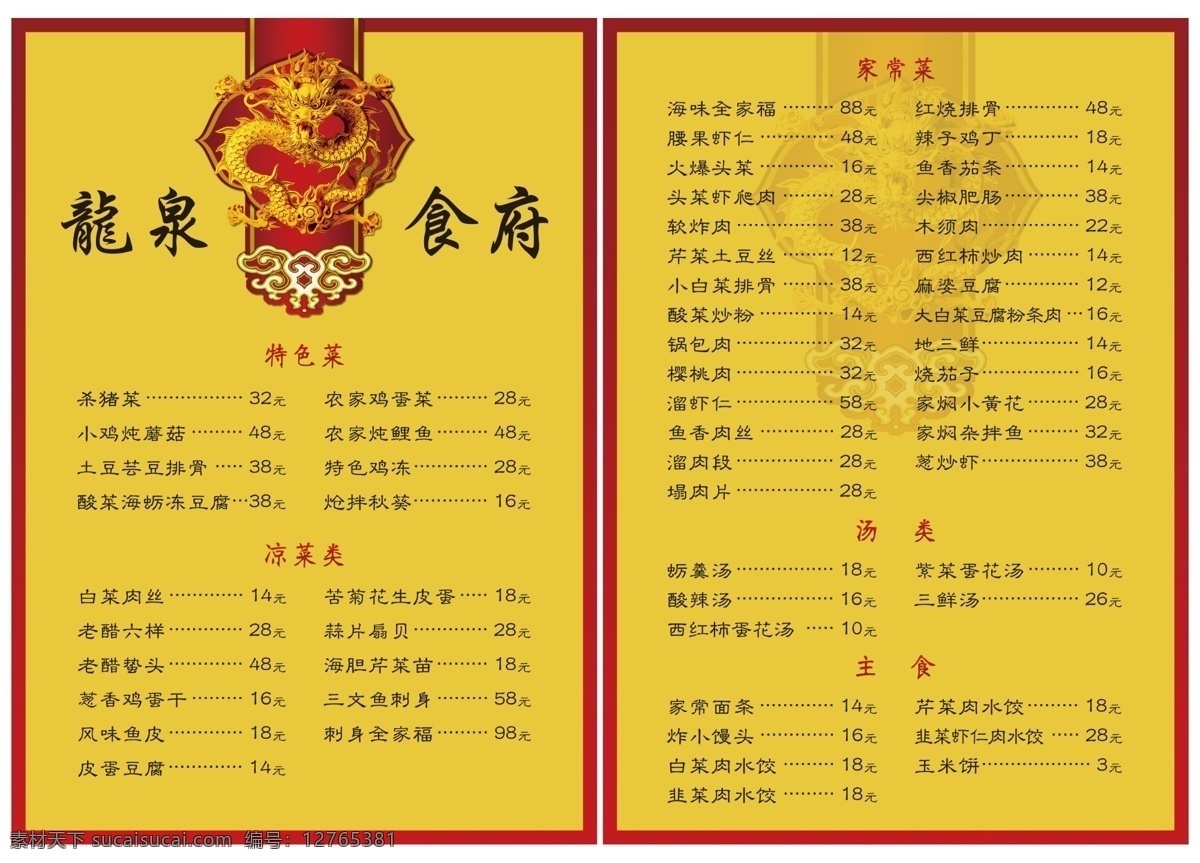 龍泉 食府
特色菜
杀猪菜 ················· 32元 农家鸡蛋菜 ········· 28元
小鸡炖蘑菇 ········· 48元 农家炖鲤鱼 ········· 48元
土豆芸豆排骨 ····· 38元 特色鸡冻 ············· 28元
酸菜海蛎冻豆腐 ··· 38元 炝拌秋葵 ············· 16元
凉菜类
白菜肉丝 ············· 14元 苦菊花生皮蛋 ····· 18元
老醋六样 ············· 28元 蒜片扇贝 ············· 28元
老醋蛰头 ············· 48元 海胆芹菜苗 ········· 18元
葱香鸡蛋干 ········· 16元 三文鱼刺身 ········· 58元
风味鱼皮 ············· 18元 刺身全家福 ········· 98元
皮蛋豆腐 ············· 14元
家常菜
海味全家福 ········· 88元 红烧排骨 ············· 48元
腰果虾仁 ············· 48元 辣子鸡丁 ············· 18元
火爆头菜 ············· 16元 鱼香茄条 ············· 14元
头菜虾爬肉 ········· 28元 尖椒肥肠 ············· 38元
软炸肉 ················· 38元 木须肉 ················· 22元
芹菜土豆丝 ········· 12元 西红柿炒肉 ········· 14元
小白菜排骨 ········· 38元 麻婆豆腐 ············· 12元
酸菜炒粉 ············· 14元 大白菜豆腐粉条肉 ··· 16元
锅包肉 ················· 32元 地三鲜 ················· 14元
樱桃肉 ················· 32元 烧茄子 ················· 16元
溜虾仁 ················· 58元 家焖小黄花 ········· 28元
鱼香肉丝 ············· 28元 家焖杂拌鱼 ········· 32元
溜肉段 ················· 28元 葱炒虾 ················· 38元
塌肉片 ················· 28元
汤 类
蛎羹汤 ················· 18元 紫菜蛋花汤 ········· 10元
酸辣汤 ················· 16元 三鲜汤 ················· 26元
西红柿蛋花汤 ····· 10元
主 食
家常面条 ············· 14元 芹菜肉水饺 ········· 18元
炸小馒头 ············· 16元 韭菜虾仁肉水饺 ····· 28元
白菜肉水饺 ········· 18元 玉米饼 ··················· 3元
韭菜肉水饺 ········· 18元
素材天下 sucaisucai.com 编号：12765381